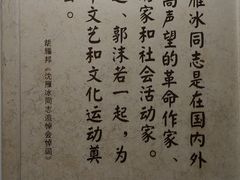 雁冰同志是在国内外
高声望的革命作家、
家和社会活动家。
、郭沫若一起，为
文艺和文化运动奠
。
胡耀邦《沈雁冰同志追悼会悼词》